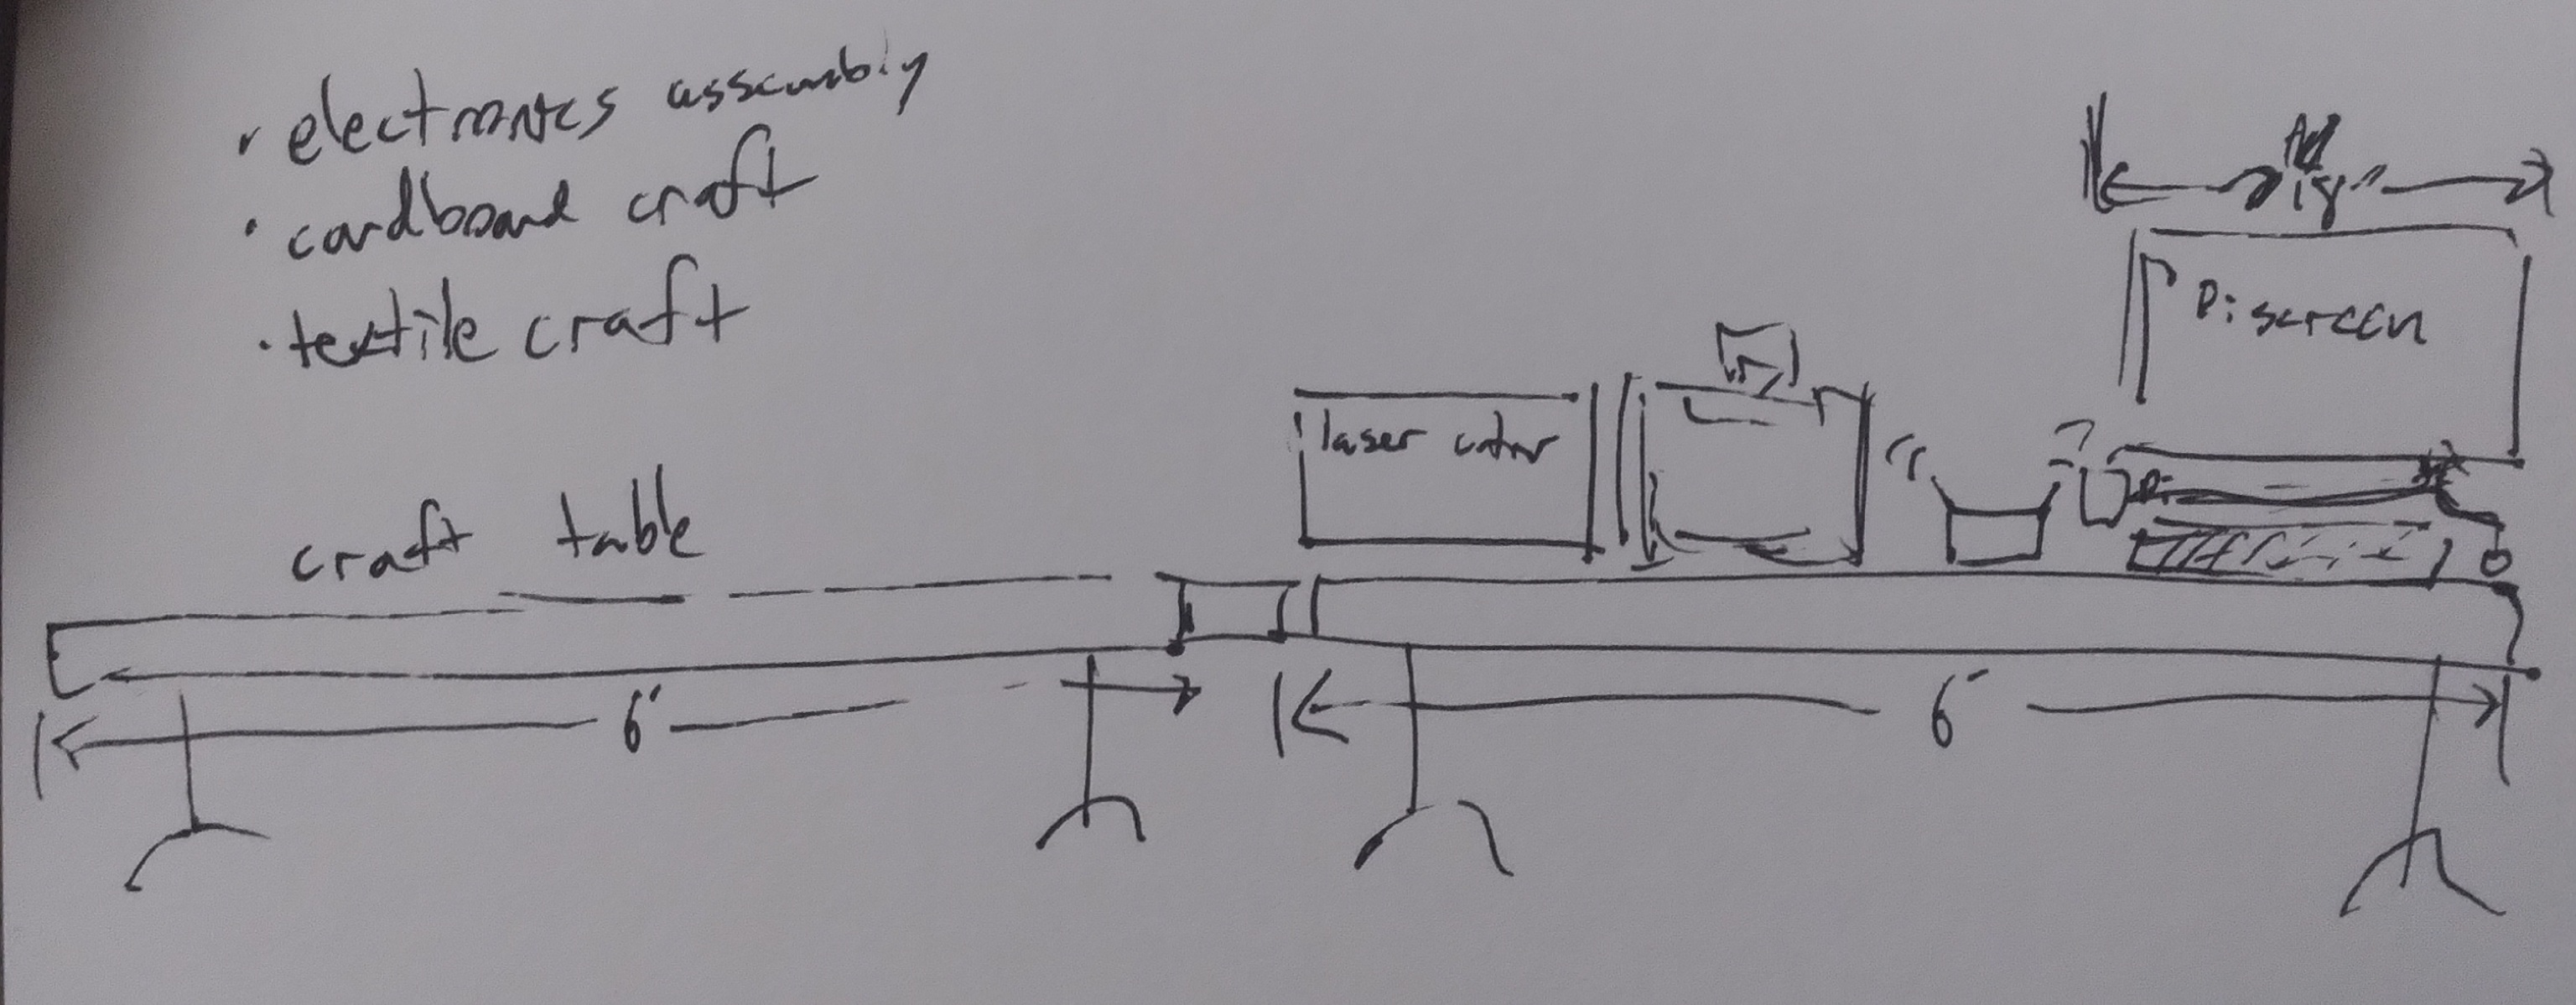 · electronics assembly
· cardboard craft
· textile craft
craft table
laser cutter
18"
Pi screen
Pi
6'
6'